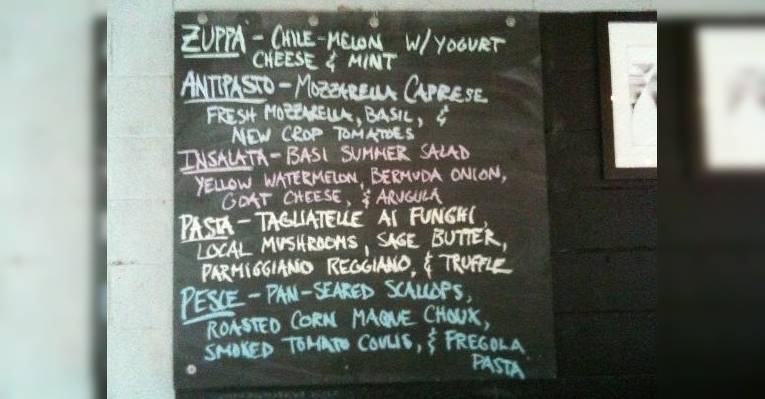 ZUPPA - CHILE-MELON W/YOGURT
CHEESE & MINT
ANTIPASTO - MOZZARELLA CAPRESE
FRESH MOZZARELLA, BASIL, &
NEW CROP TOMATOES
INSALATA - BASI SUMMER SALAD
YELLOW WATERMELON, BERMUDA ONION,
GOAT CHEESE, & ARUGULA
PASTA - TAGLIATELLE AI FUNGHI,
LOCAL MUSHROOMS, SAGE BUTTER,
PARMIGGIANO REGGIANO, & TRUFFLE
PESCE - PAN-SEARED SCALLOPS,
ROASTED CORN MAQUE CHOUX,
SMOKED TOMATO COULIS, & FREGOLA
PASTA